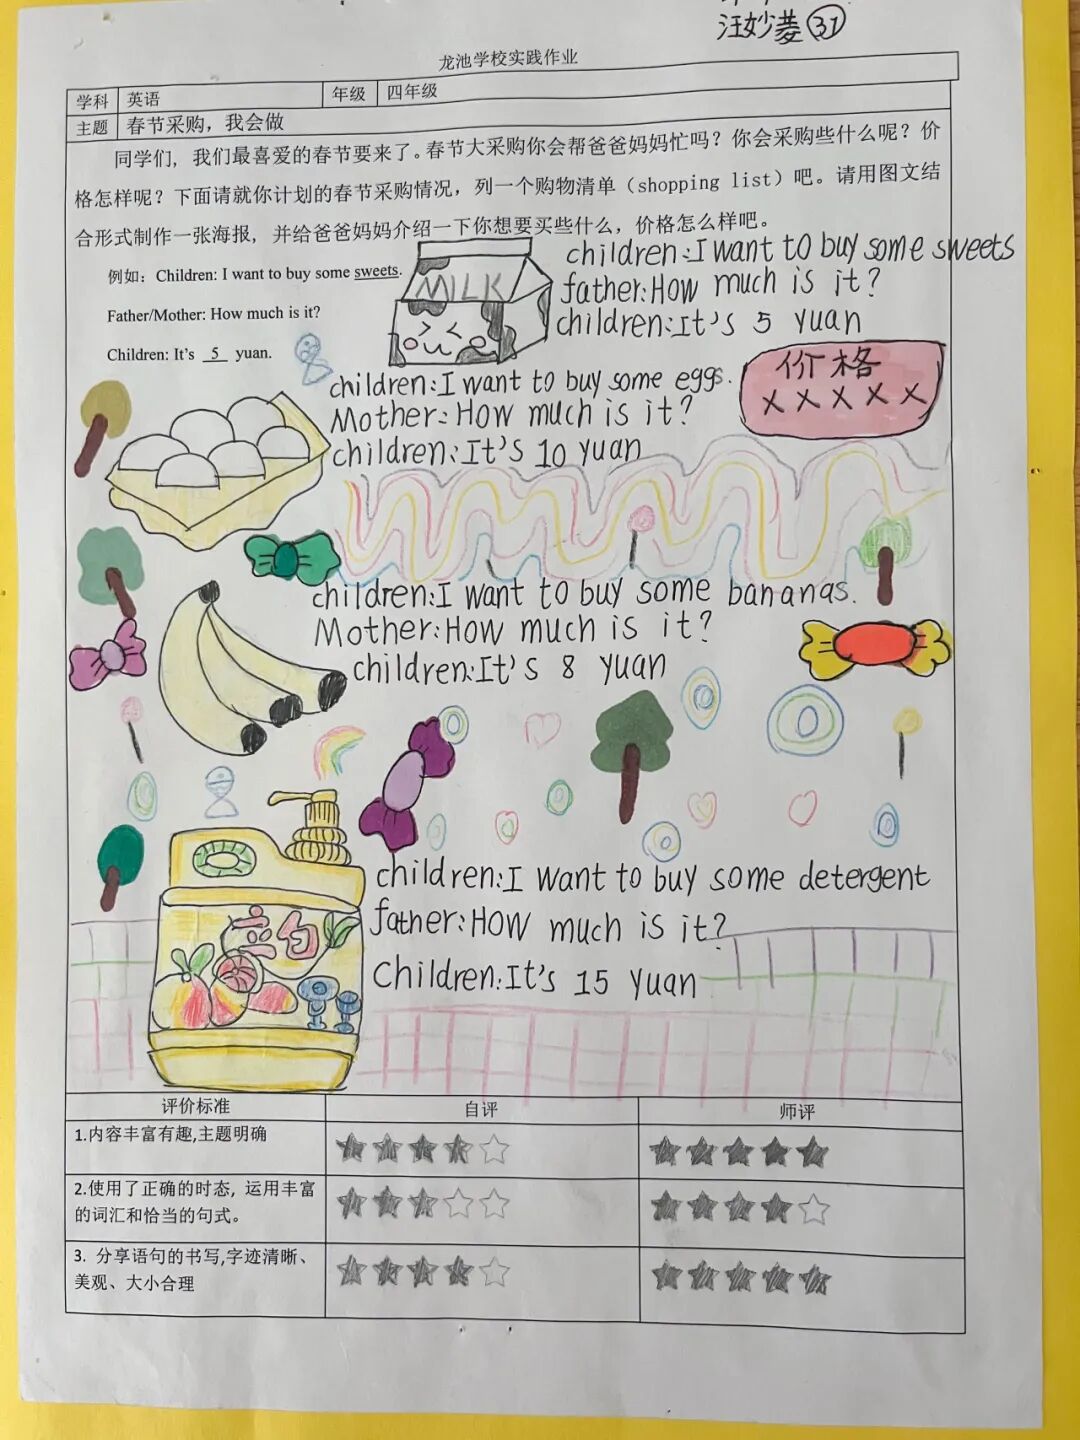 汪妙菱 31
龙池学校实践作业
学科 英语 年级 四年级
主题 春节采购，我会做
同学们，我们最喜爱的春节要来了。春节大采购你会帮爸爸妈妈忙吗？你会采购些什么呢？价
格怎样呢？下面请就你计划的春节采购情况，列一个购物清单（shopping list）吧。请用图文结
合形式制作一张海报，并给爸爸妈妈介绍一下你想要买些什么，价格怎么样吧。
例如：Children: I want to buy some sweets.
Father/Mother: How much is it?
Children: It's 5 yuan.
MILK
children:I want to buy some sweets
father:How much is it?
children:It's 5 yuan
价格
×××××
children:I want to buy some eggs.
Mother:How much is it?
children:It's 10 yuan
children:I want to buy some bananas.
Mother:How much is it?
children:It's 8 yuan
children:I want to buy some detergent
father:How much is it?
Children:It's 15 yuan
评价标准 自评 师评
1.内容丰富有趣,主题明确
2.使用了正确的时态，运用丰富
的词汇和恰当的句式。
3. 分享语句的书写,字迹清晰、
美观、大小合理